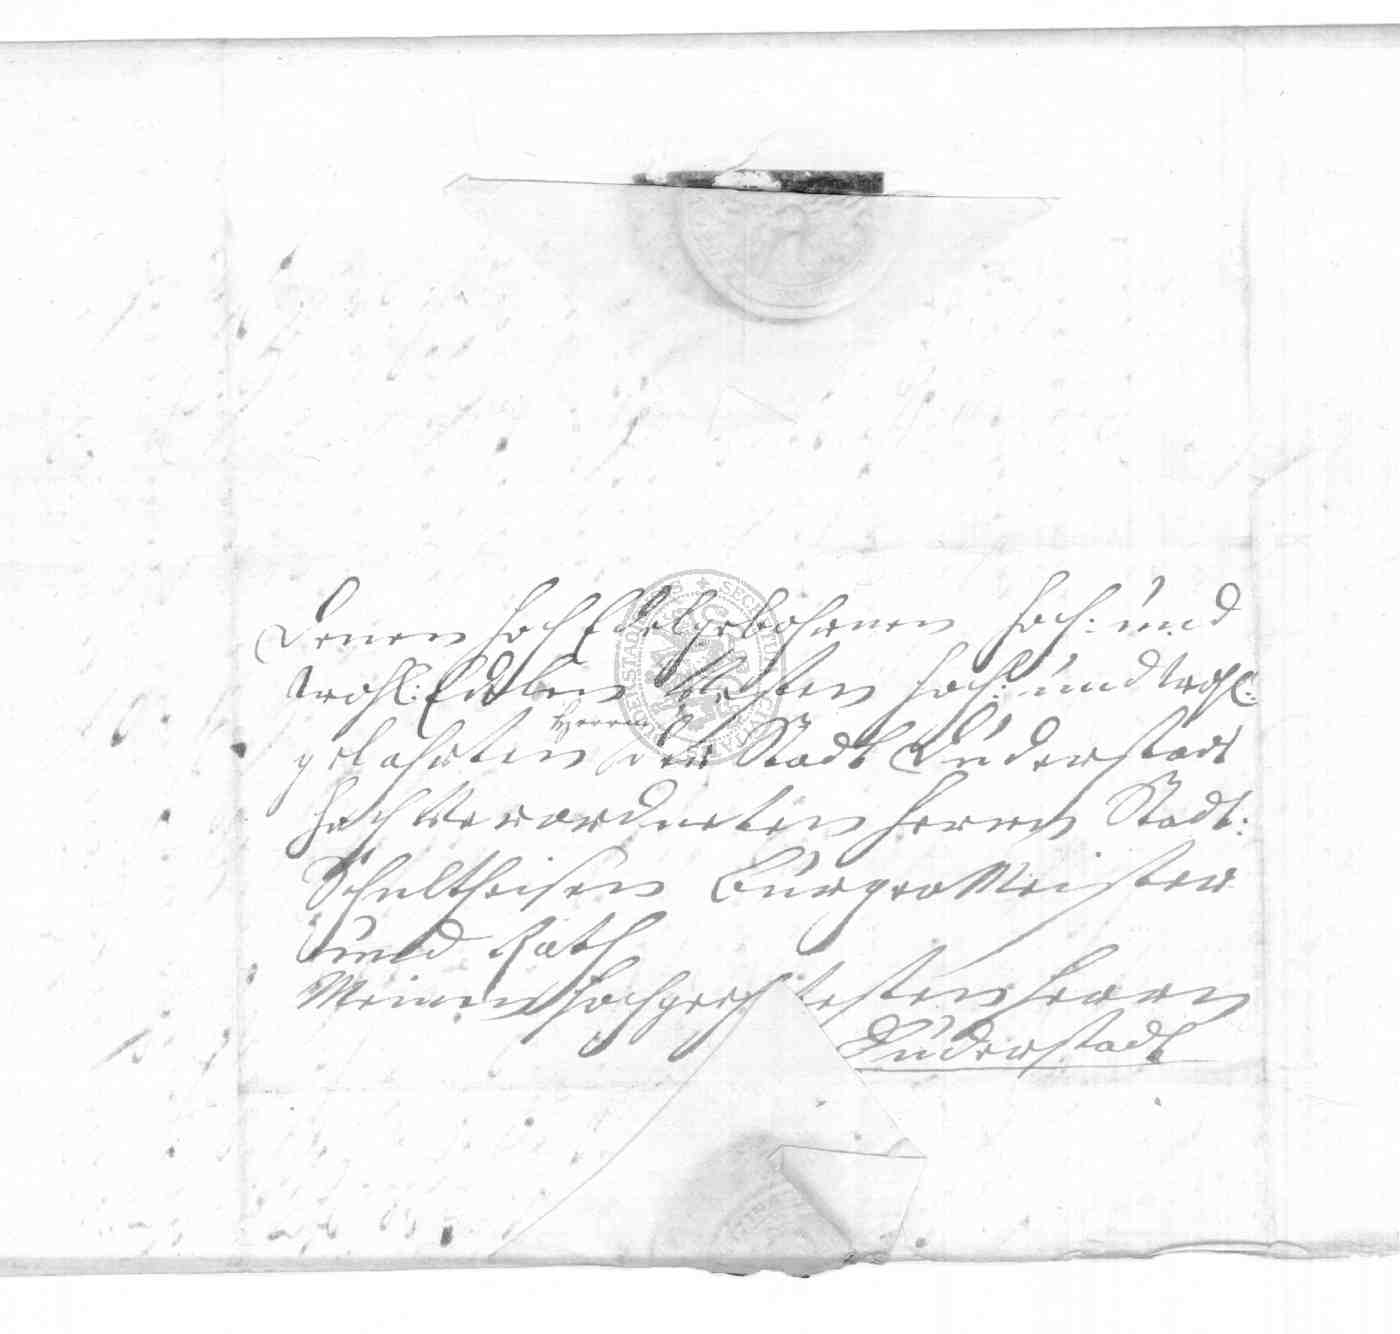 Denen HochEdelgebohrnen Hoch: und
Wohl: Edlen Vesten Hoch: und Wohl:
Herren
gelahrten der Stadt Duderstadt
HochVerordneten Herrn Stadt:
Schultheisen BurgerMeister
und Rath
Meinen Hochgeehrtesten Herrn
Duderstadt